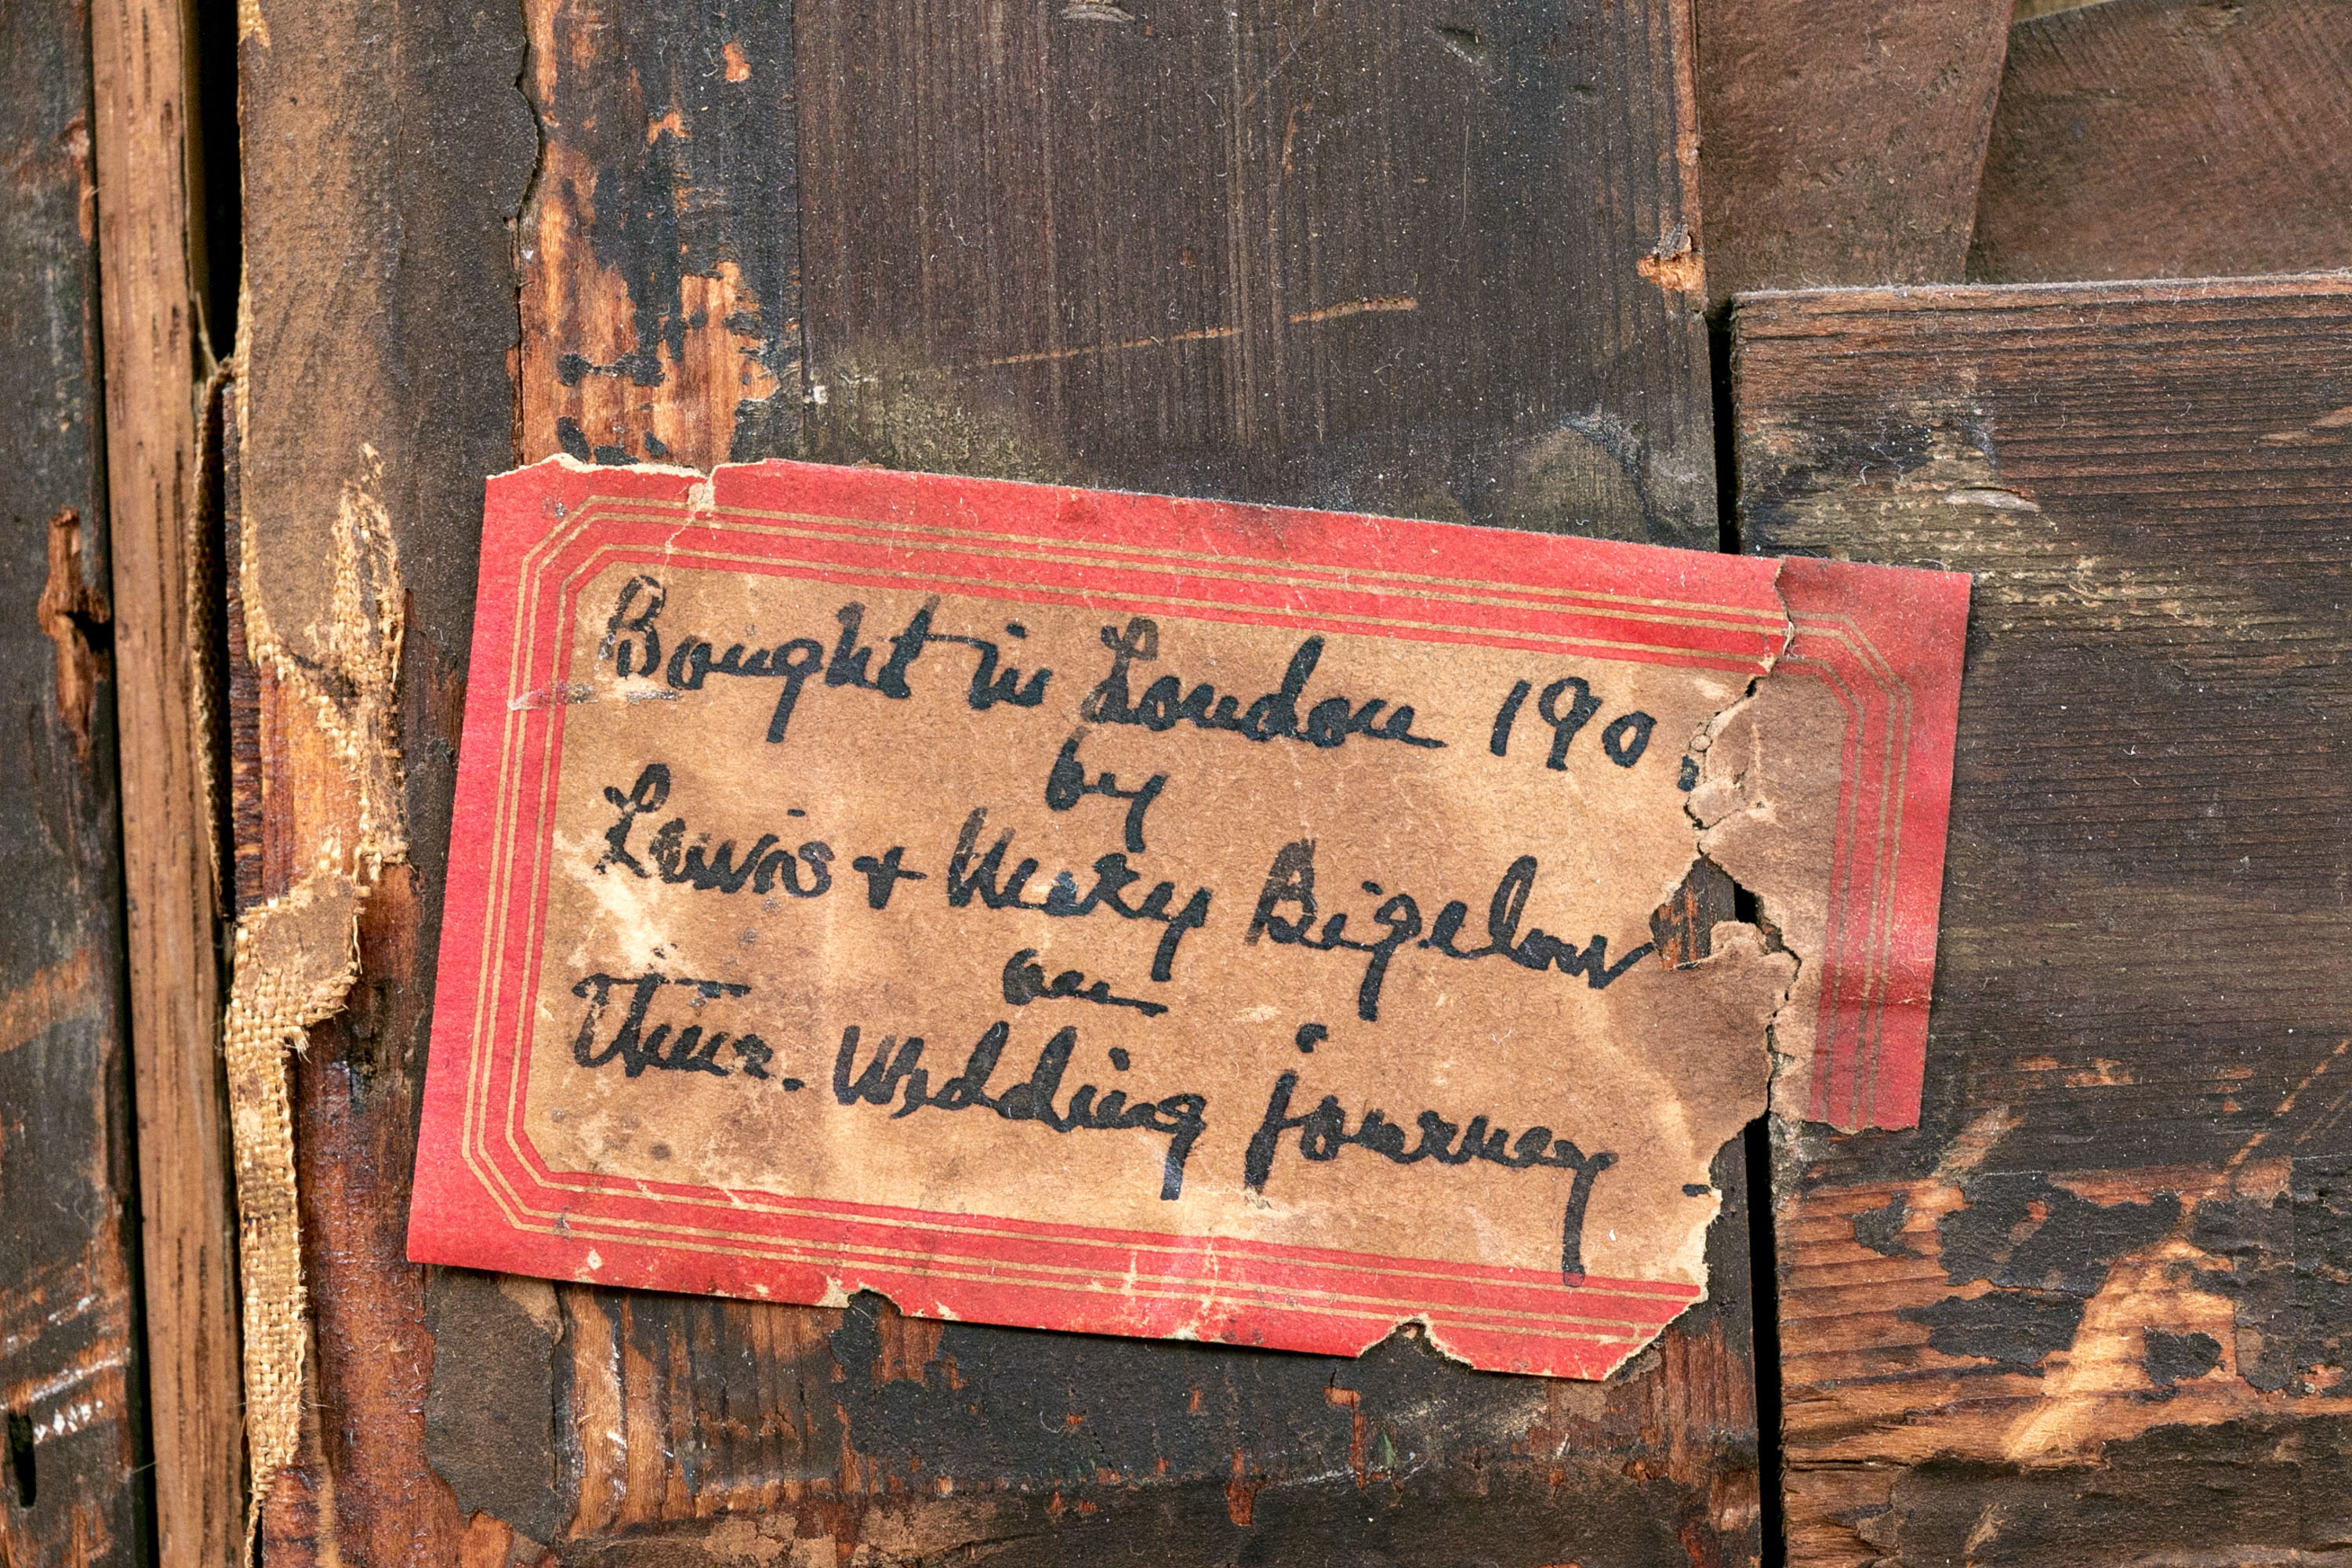 Bought in London 190
by
Lewis + Mary Bigelow
on
Their Wedding journey